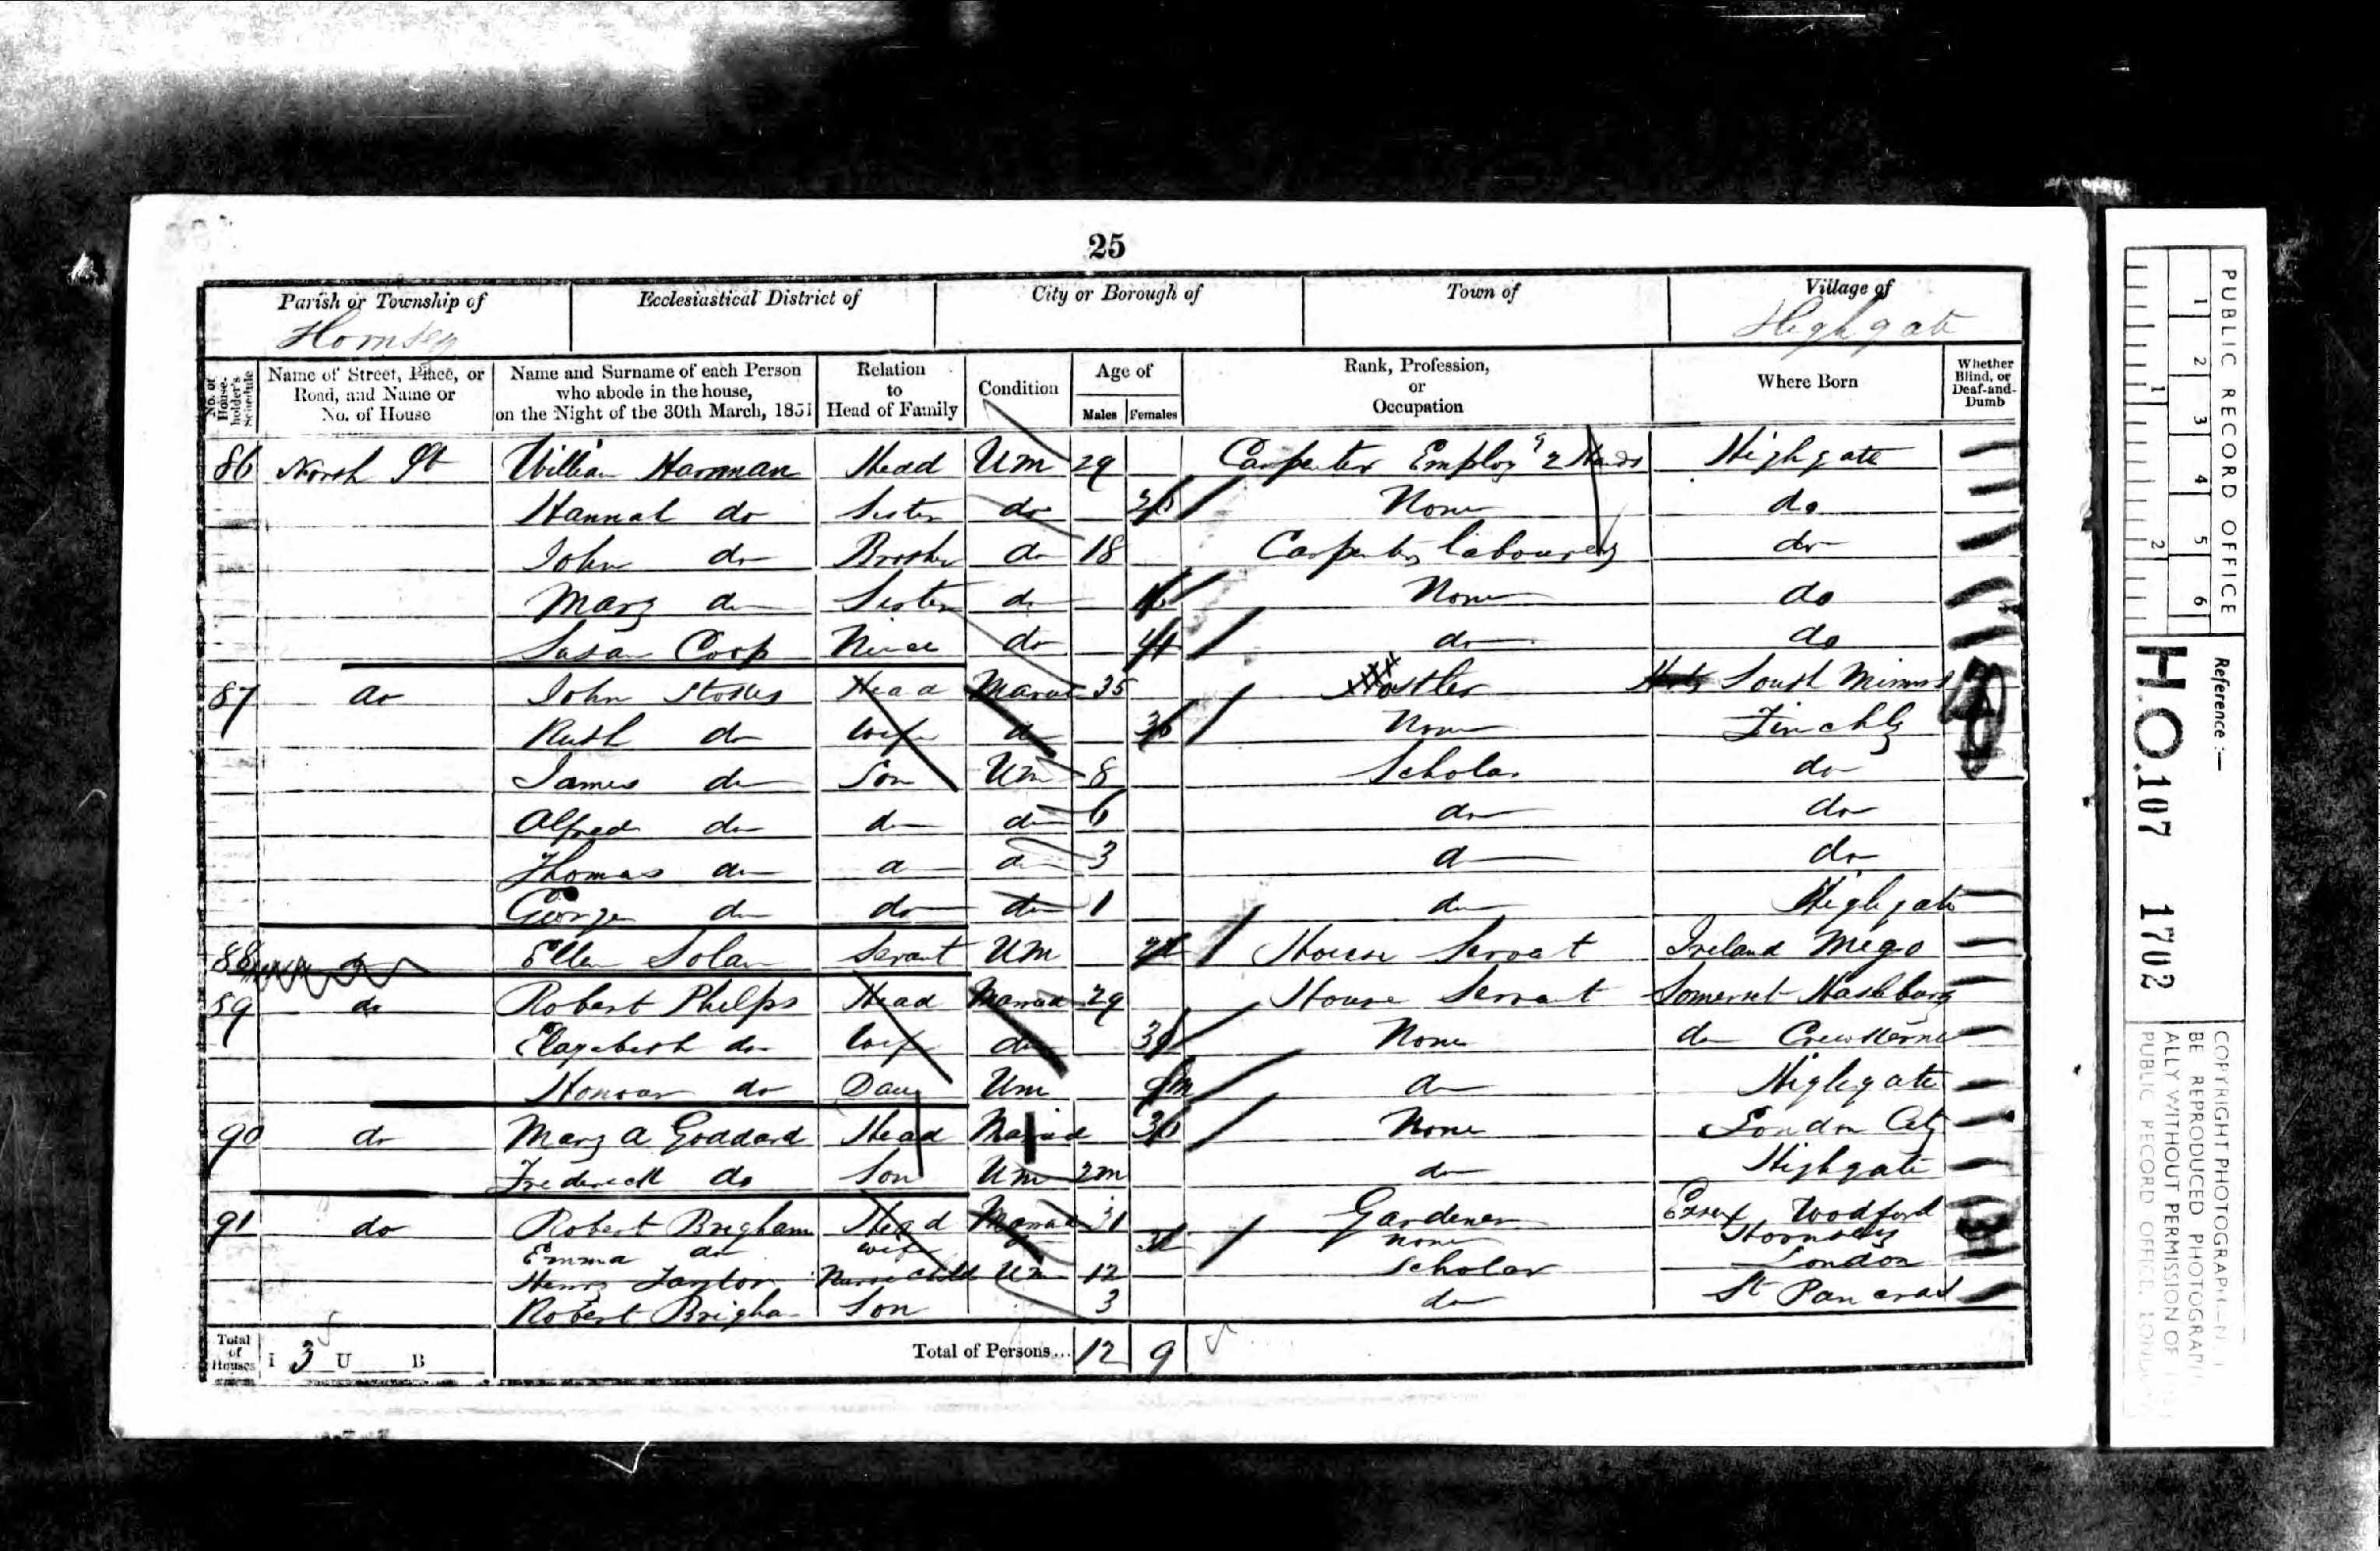 25
Parish or Township of Ecclesiastical District of City or Borough of Town of Village of
Hornsey Highgate
No. of House-holder's Schedule
Name of Street, Place, or Road, and Name or No. of House
Name and Surname of each Person who abode in the house, on the Night of the 30th March, 1851
Relation to Head of Family
Condition
Age of
Males Females
Rank, Profession, or Occupation
Where Born
Whether Blind, or Deaf-and-Dumb
86 North St William Harman Head Um 29 Carpenter Employg 2 Hands Highgate
Hannah do Sister do None do
John do Brother do 18 Carpenters labourer do
Mary do Sister do None do
Susan Coop Niece do do do
87 do John Stokes Head Married 35 Ostler South Mimms
Ruth do Wife do None Finchly
James do Son Um 8 Scholar do
Alfred do do do 6 do do
Thomas do do do 3 do do
George do do do 1 do Highgate
88 Ellen Solan Servant Um House Servant Ireland
89 do Robert Phelps Head Married 29 House Servant Somerset
Elizabeth do Wife do None do Crewkerne
do Daug Um do Highgate
90 do Mary A Goddard Head Married 36 None London City
Frederick do Son Um 2m do Highgate
91 do Robert Brigham Head Married 31 Gardener Essex Woodford
Emma do Wife none Hornsey
Henry Taylor Nurse Child Um 12 Scholar London
Robert Brigham Son 3 do St Pancras
Total of Houses I 3 U B Total of Persons... 12 9
PUBLIC RECORD OFFICE
1 2 3 4 5 6
1 2
Reference :—
H.O. 107 1702
COPYRIGHT PHOTOGRAPH—
BE REPRODUCED PHOTOGRAPH
ALLY WITHOUT PERMISSION OF
PUBLIC RECORD OFFICE, LONDON